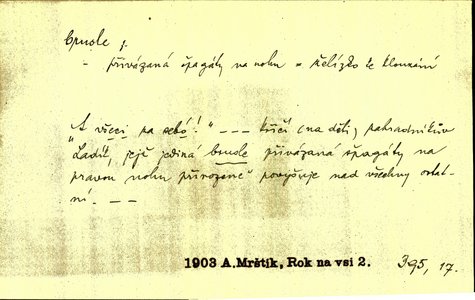 brusle f.
- přivázaná špagáty na nohu = želízko ke klouzání
„A všeci za sebó!" --- křičí (na děti) zahradníkův
Ladik, jejž jediná brusle přivázaná špagáty na
pravou nohu přirozeně povyšuje nad všechny ostat-
ní. ---
1903 A.Mrštík, Rok na vsi 2. 395, 17.